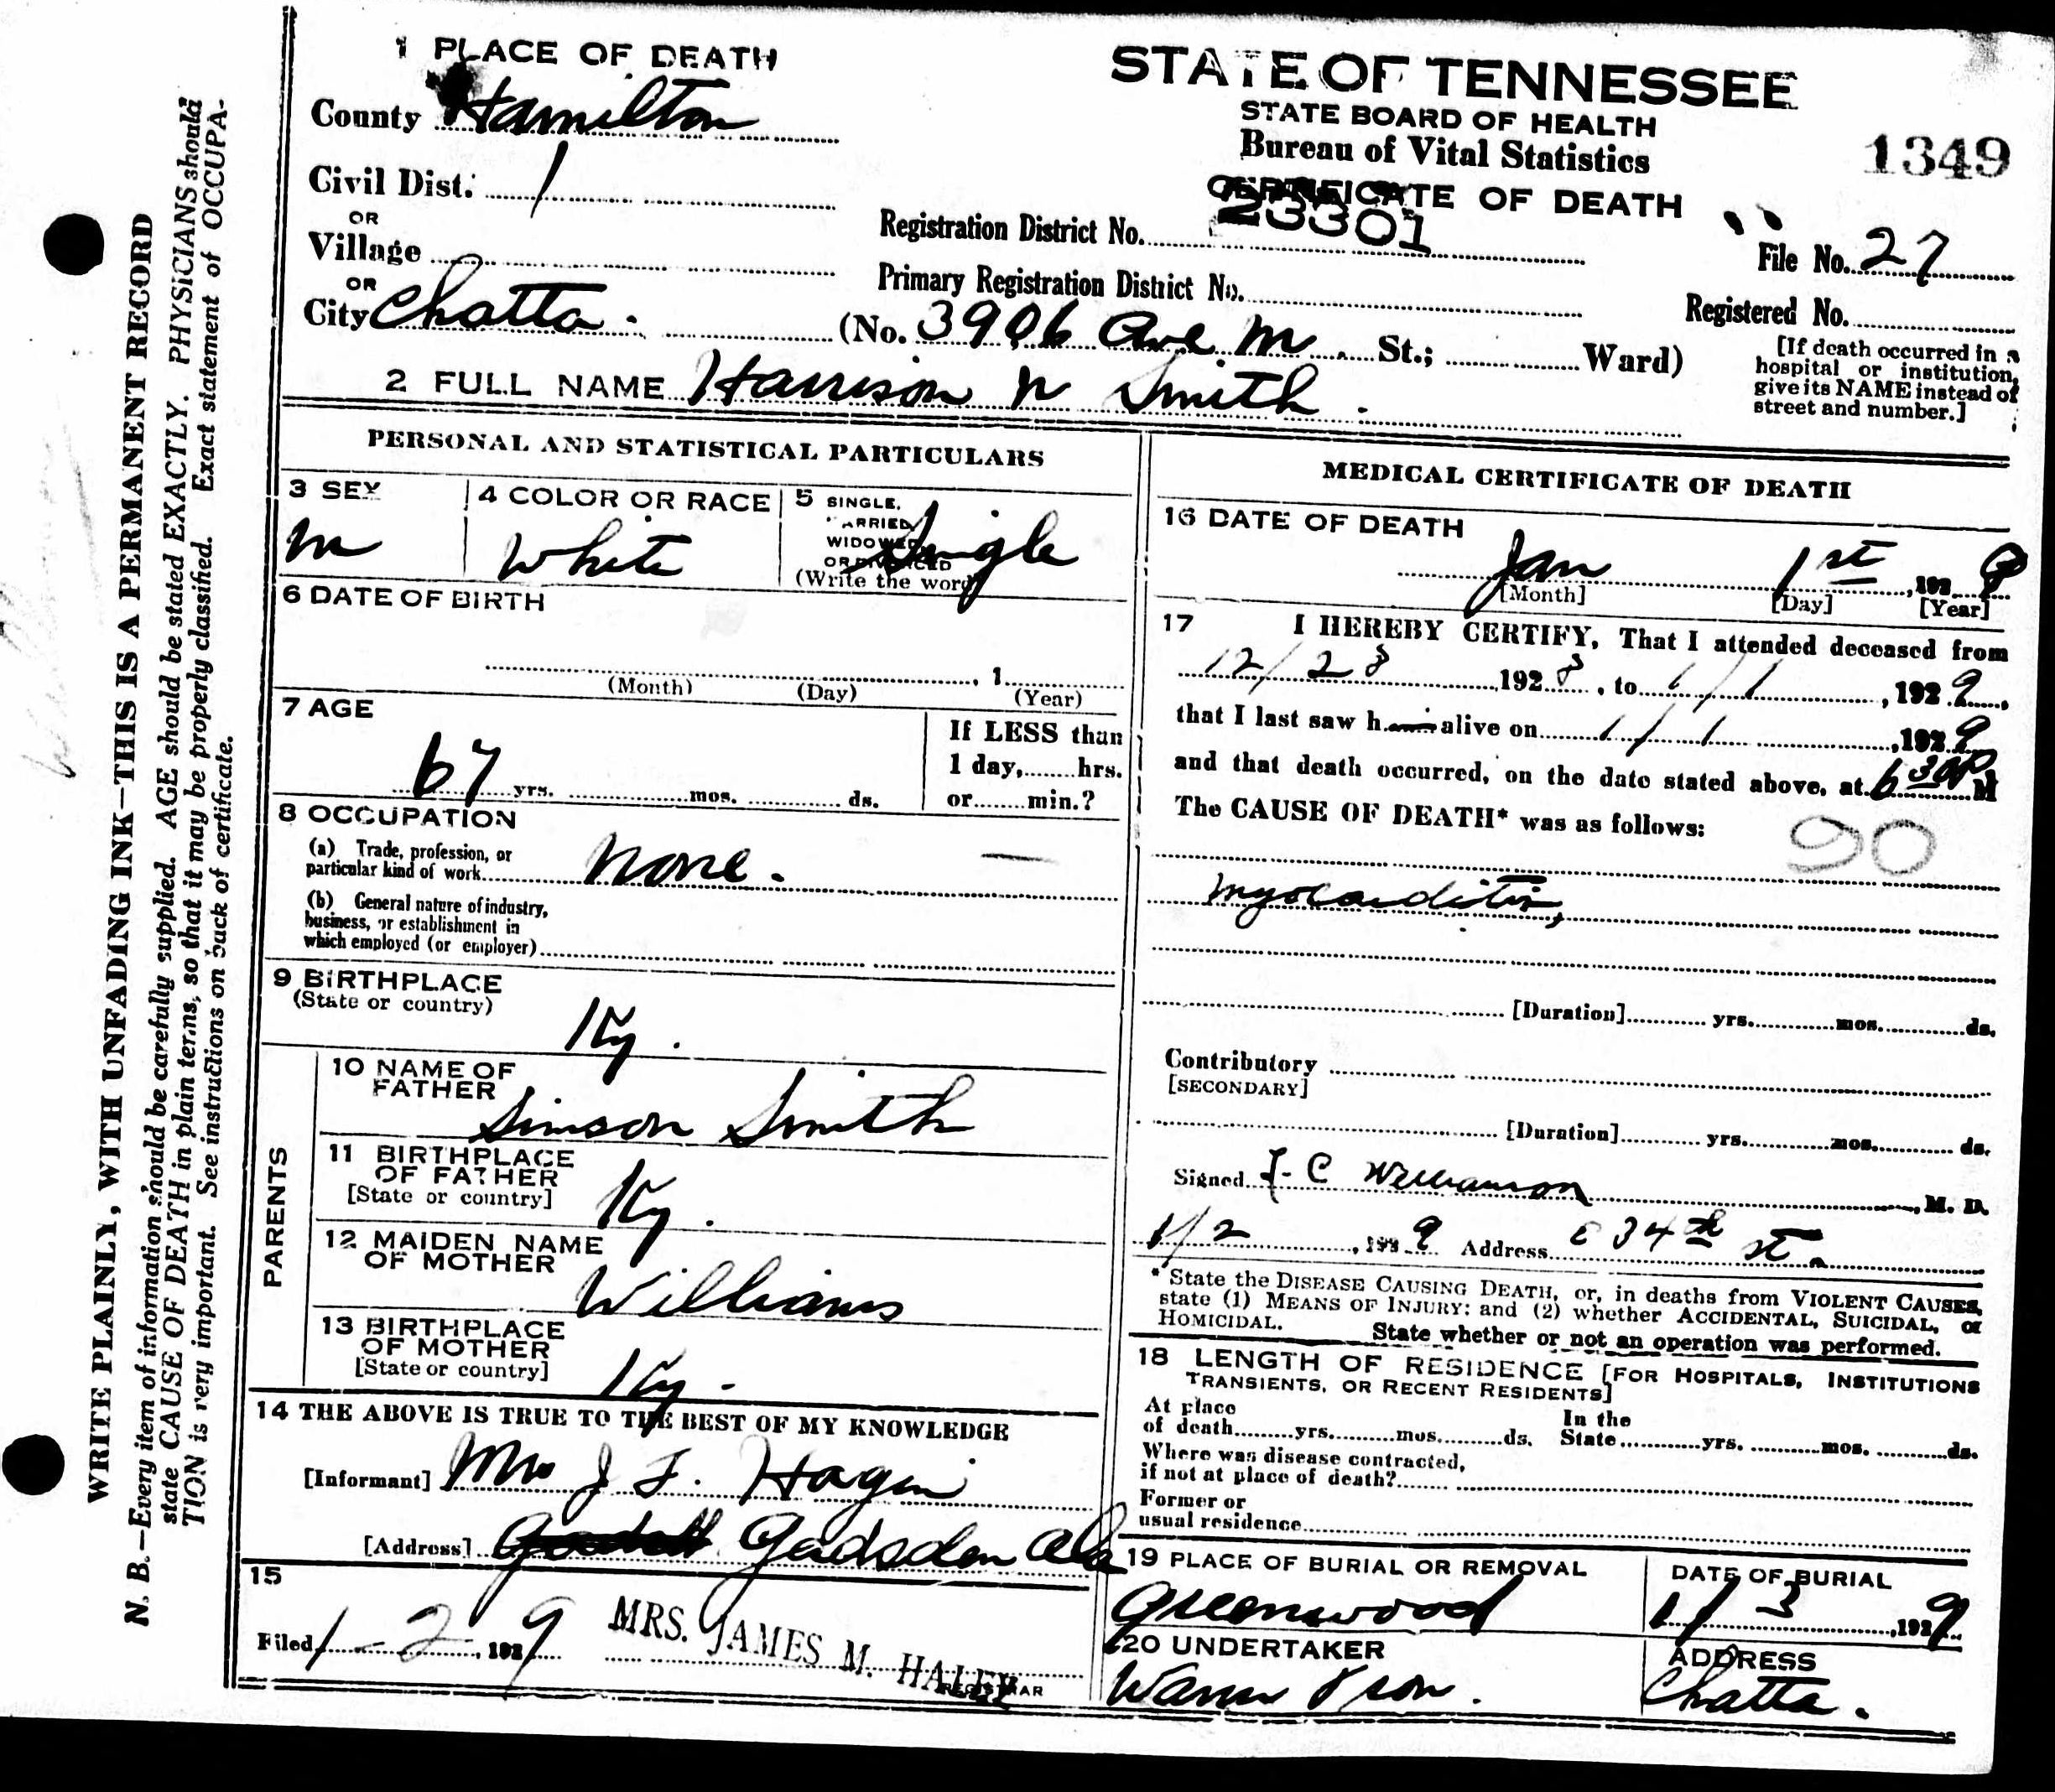 WRITE PLAINLY, WITH UNFADING INK—THIS IS A PERMANENT RECORD
N. B.—Every item of information should be carefully supplied. AGE should be stated EXACTLY. PHYSICIANS should
state CAUSE OF DEATH in plain terms, so that it may be properly classified. Exact statement of OCCUPA-
TION is very important. See instructions on back of certificate.
1 PLACE OF DEATH
County Hamilton
Civil Dist. 1
OR
Village
OR
City Chatta.
(No. 3906 Ave M St.; Ward)
STATE OF TENNESSEE
STATE BOARD OF HEALTH
Bureau of Vital Statistics
CERTIFICATE OF DEATH
1349
Registration District No. 23301
File No. 27
Primary Registration District No.
Registered No.
[If death occurred in a
hospital or institution,
give its NAME instead of
street and number.]
2 FULL NAME Harrison N Smith.
PERSONAL AND STATISTICAL PARTICULARS
3 SEX
M
4 COLOR OR RACE
White
5 SINGLE,
MARRIED,
WIDOWED,
OR DIVORCED
(Write the word)
Single
6 DATE OF BIRTH
, 1
(Month) (Day) (Year)
7 AGE
67 yrs. mos. ds.
If LESS than
1 day, hrs.
or min.?
8 OCCUPATION
(a) Trade, profession, or
particular kind of work None.
(b) General nature of industry,
business, or establishment in
which employed (or employer)
9 BIRTHPLACE
(State or country)
Ky.
PARENTS
10 NAME OF
FATHER
Simson Smith
11 BIRTHPLACE
OF FATHER
[State or country]
Ky.
12 MAIDEN NAME
OF MOTHER
Williams
13 BIRTHPLACE
OF MOTHER
[State or country]
Ky.
14 THE ABOVE IS TRUE TO THE BEST OF MY KNOWLEDGE
[Informant] Mrs J F. Hagin
[Address] Gadsden Ala
15
Filed 1-2, 1929 MRS. JAMES M. HALEY
REGISTRAR
MEDICAL CERTIFICATE OF DEATH
16 DATE OF DEATH
Jan 1st, 1929
[Month] [Day] [Year]
17 I HEREBY CERTIFY, That I attended deceased from
12/28, 1928, to 1/1, 1929,
that I last saw h alive on 1/1, 1929
and that death occurred, on the date stated above, at 6 30 P M
The CAUSE OF DEATH* was as follows:
90
Myocarditis,
[Duration] yrs. mos. ds.
Contributory
[SECONDARY]
[Duration] yrs. mos. ds.
Signed J. C Williamson, M. D.
1/2, 1929 Address E 34th St.
* State the DISEASE CAUSING DEATH, or, in deaths from VIOLENT CAUSES,
state (1) MEANS OF INJURY; and (2) whether ACCIDENTAL, SUICIDAL, or
HOMICIDAL. State whether or not an operation was performed.
18 LENGTH OF RESIDENCE [FOR HOSPITALS, INSTITUTIONS
TRANSIENTS, OR RECENT RESIDENTS]
At place
of death yrs. mos. ds.
In the
State yrs. mos. ds.
Where was disease contracted,
if not at place of death?
Former or
usual residence
19 PLACE OF BURIAL OR REMOVAL
Greenwood
DATE OF BURIAL
1/3, 1929
20 UNDERTAKER
Wann & Son.
ADDRESS
Chatta.